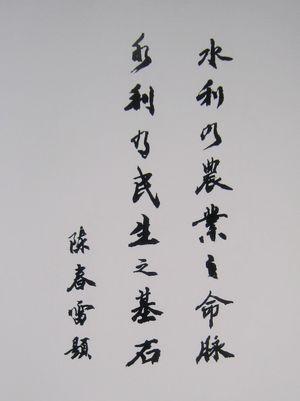 水利乃農業之命脈
水利為民生之基石
陳春雷題